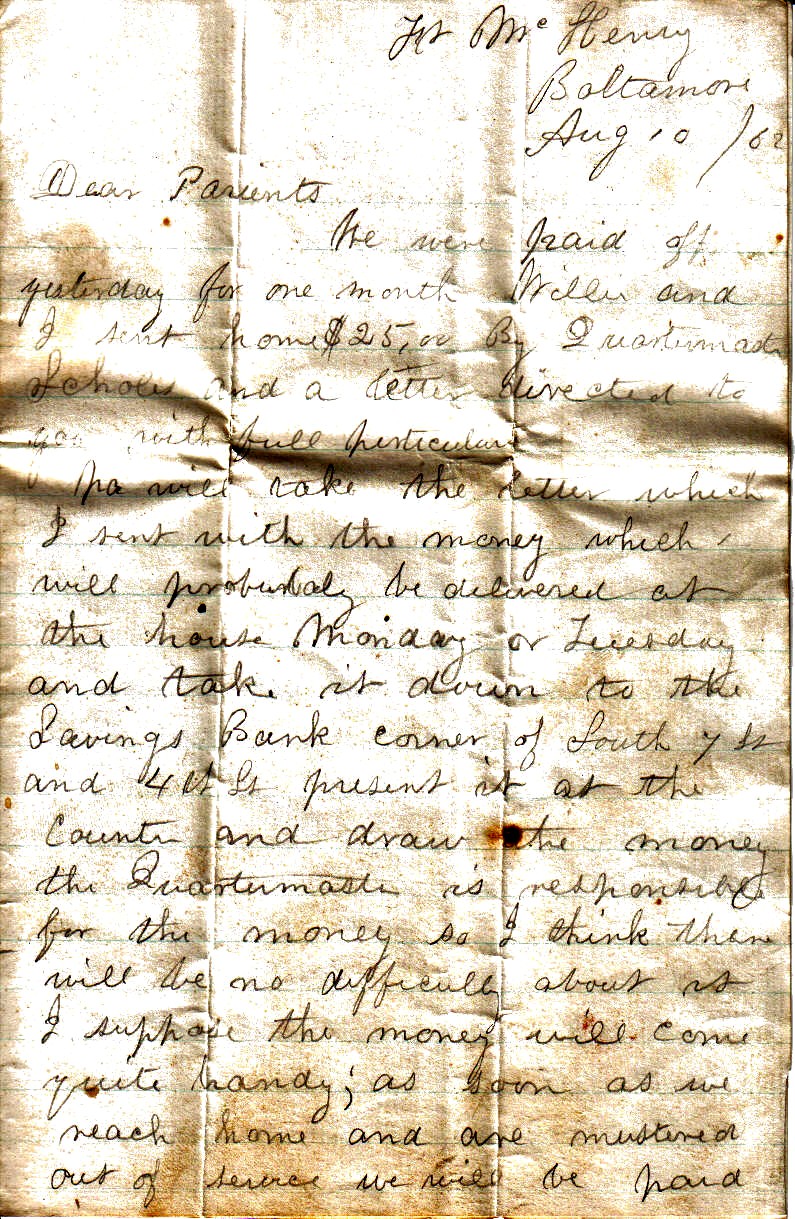 Ft Mc Henry
Boltamore
Aug 10 /62
Dear Parients
We were paid off
yesterday for one month Willie and
I sent home $25,00 By Quartermaster
Scholes and a letter directed to
you with full perticulars
Pa will take the letter which
I sent with the money which
will proburbaly be delivered at
the house Monday or Tuesday
and take it down to the
Savings Bank corner of South 7 St
and 4th St present it at the
Counter and draw the money
the Quartermaster is responsible
for the money so I think thare
will be no difficulty about it
I suppose the money will come
quite handy; as soon as we
reach home and are mustered
out of service we will be paid